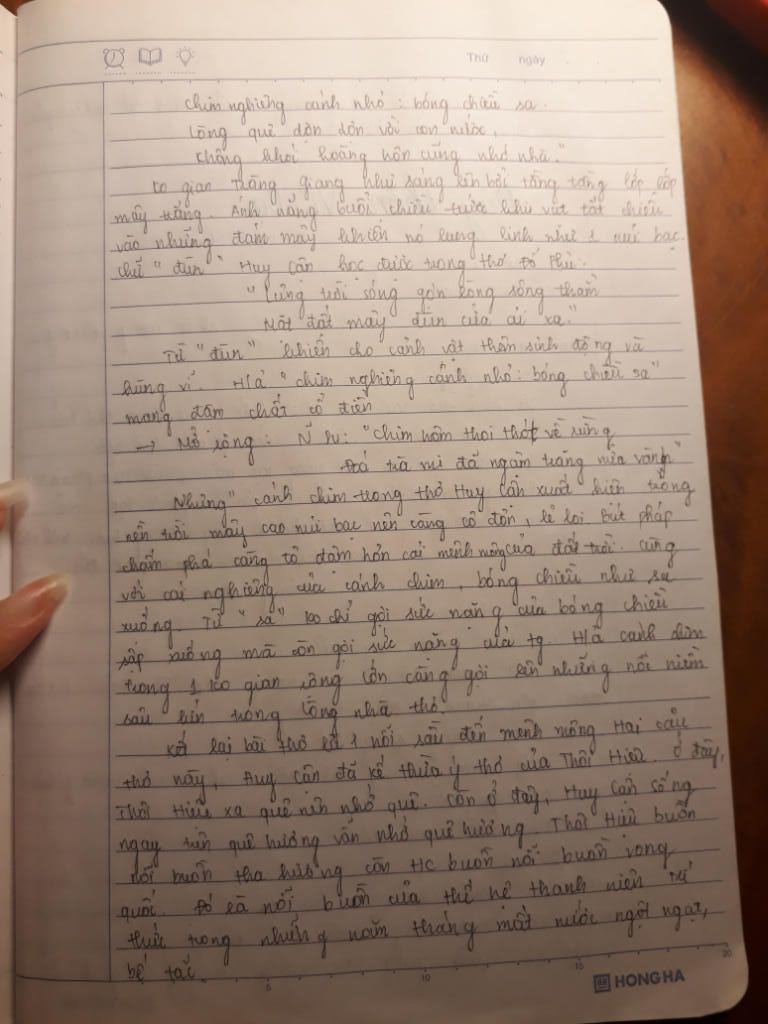 Thứ ngày
chim nghiêng cánh nhỏ : bóng chiều sa.
Lòng quê dờn dợn vời con nước,
Không khói hoàng hôn cũng nhớ nhà."
Ko gian tràng giang như sáng lên bởi tầng tầng lớp lớp
mây trắng. Ánh nắng buổi chiều trước khi vụt tắt chiếu
vào những đám mây khiến nó lung linh như 1 núi bạc.
chữ "đùn" Huy Cận học được trong thơ Đỗ Phủ.
"Lưng trời sóng gợn lòng sông thẳm
Mặt đất mây đùn cửa ải xa."
Từ "đùn" khiến cho cảnh vật thêm sinh động và
hùng vĩ. H/ả "chim nghiêng cánh nhỏ : bóng chiều sa"
mang đậm chất cổ điển
→ Mở rộng : "Chim hôm thoi thót về rừng
Đoá trà mi đã ngậm trăng nửa vành"
Nhưng" cánh chim trong thơ Huy Cận xuất hiện trong
nền trời mây cao núi bạc nên càng cô đơn, lẻ loi. Bút pháp
chấm phá càng tô đậm hơn cái mênh mông của đất trời. Cùng
với cái nghiêng của cánh chim, bóng chiều như sa
xuống. Từ "sa" ko chỉ gợi sức nặng của bóng chiều
sập xuống mà còn gợi sức nặng của tg. H/ả cánh chim
trong 1 ko gian rộng lớn càng gợi lên những nỗi niềm
sâu kín trong lòng nhà thơ.
Kết lại bài thơ là 1 nỗi sầu đến mênh mông. Hai câu
thơ này, Huy Cận đã kế thừa ý thơ của Thôi Hiệu. Ở đây,
Thôi Hiệu xa quê nên nhớ quê. Còn ở đây, Huy Cận sống
ngay trên quê hương vẫn nhớ quê hương. Thôi Hiệu buồn
nỗi buồn tha hương còn HC buồn nỗi buồn vong
quốc. Đó là nỗi buồn của thế hệ thanh niên trí
thức trong những năm tháng mất nước ngột ngạt,
bế tắc.
5 10 15 20
HONG HA